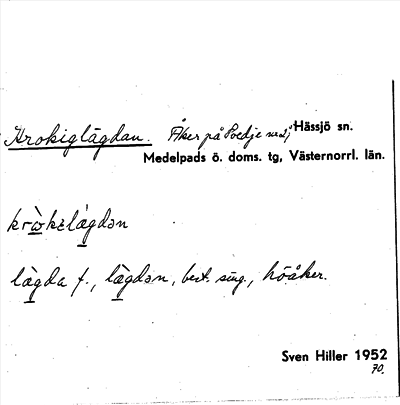 Krokiglägdan. Åker på Toedje nr 2, Hässjö sn.
Medelpads ö. doms. tg, Västernorrl. län.
kròkelägdən
lägda f., lägdən, best. sing., höåker.
Sven Hiller 1952
70